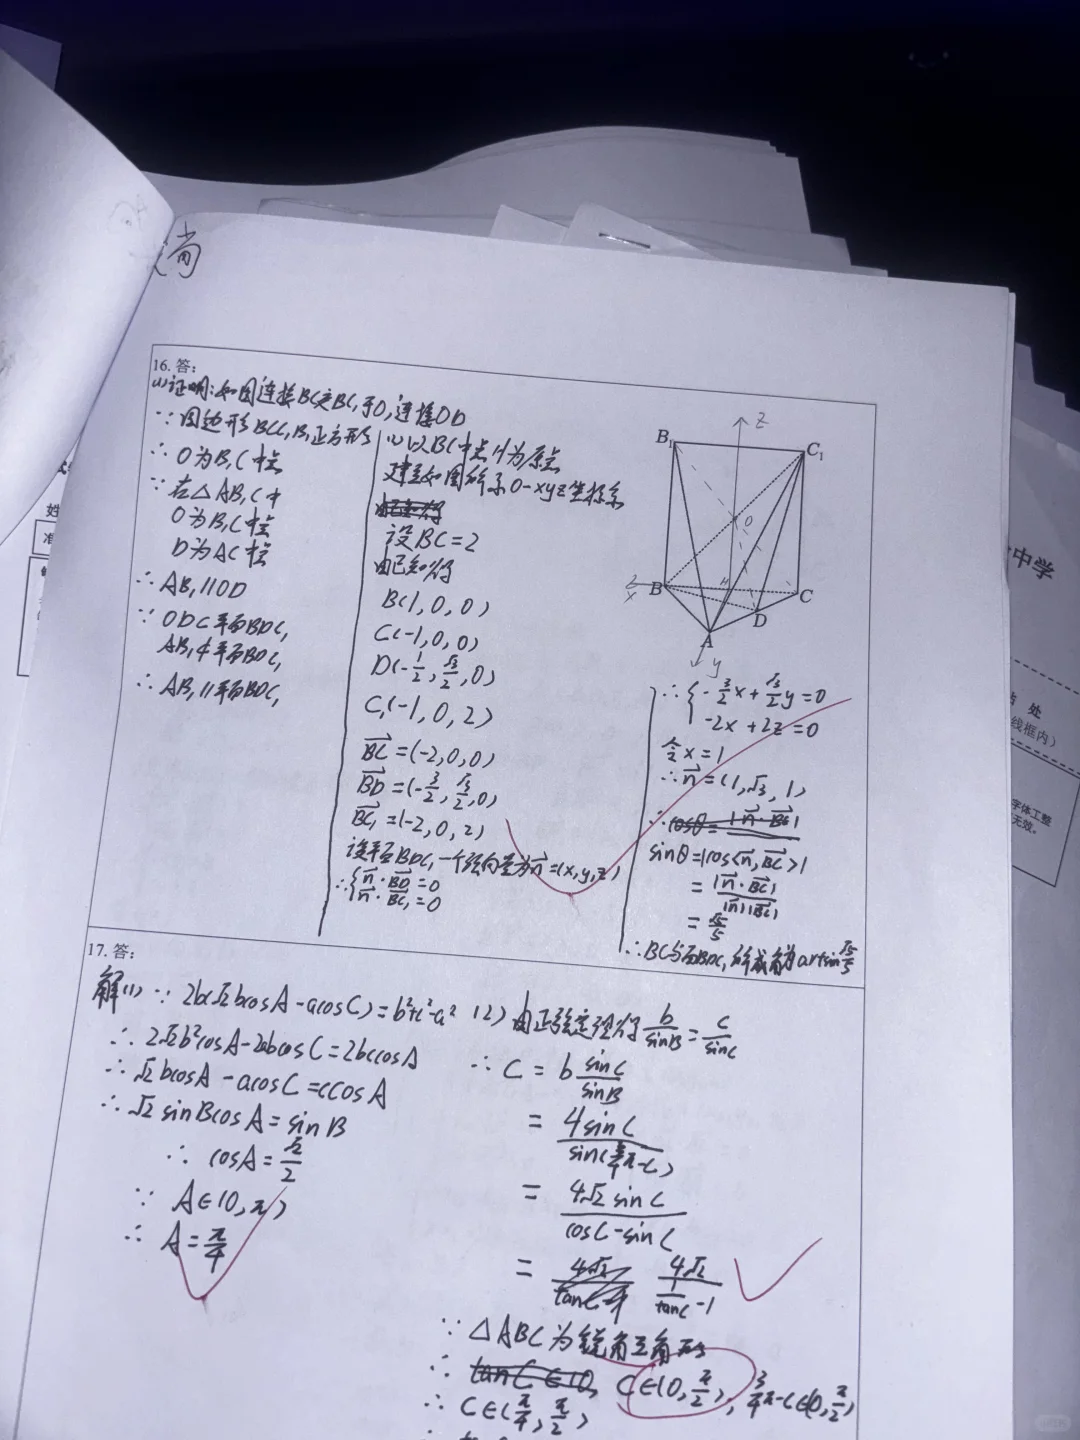 尚
16. 答：
(1)证明：如图连接B₁C交BC₁于O,连接OD
∵四边形BCC₁B₁正方形
∴O为B₁C中点
∵在△AB₁C中
O为B₁C中点
D为AC中点
∴AB₁∥OD
∵OD⊂平面BDC₁
AB₁⊄平面BDC₁
∴AB₁∥平面BDC₁
(2)以BC中点H为原点
建立如图所示O-xyz坐标系
设BC=2
由已知得
B(1,0,0)
C(-1,0,0)
D(-1/2,√3/2,0)
C₁(-1,0,2)
BC→=(-2,0,0)
BD→=(-3/2,√3/2,0)
BC₁→=(-2,0,2)
设平面BDC₁一个法向量为n→=(x,y,z)
∴{n→·BD→=0
n→·BC₁→=0
B₁
z
C₁
O
x
B
H
C
D
A
y
∴{-3/2x+√3/2y=0
-2x+2z=0
令x=1
∴n→=(1,√3,1)
∴cosθ=|n→·BC→|
sinθ=|cos<n→,BC→>|
=|n→·BC→|/|n→||BC→|
=√5/5
∴BC与面BDC₁所成角为arcsin√5/5
17. 答：
解(1)∵2b(√2bcosA-acosC)=b²+c²-a²
∴2√2b²cosA-2abcosC=2bccosA
∴√2bcosA-acosC=ccosA
∴√2sinBcosA=sinB
∴cosA=√2/2
∵A∈(0,π)
∴A=π/4
(2)由正弦定理得b/sinB=c/sinC
∴C=b sinC/sinB
=4sinC/sin(3/4π-C)
=4√2sinC/cosC-sinC
=4√2/(1/tanC-1)
∵△ABC为锐角三角形
∴tanC∈(0, C∈(0,π/2),3/4π-C∈(0,π/2)
∴C∈(π/4,π/2)
中学
处
线框内）
字体工整
无效。
姓
准